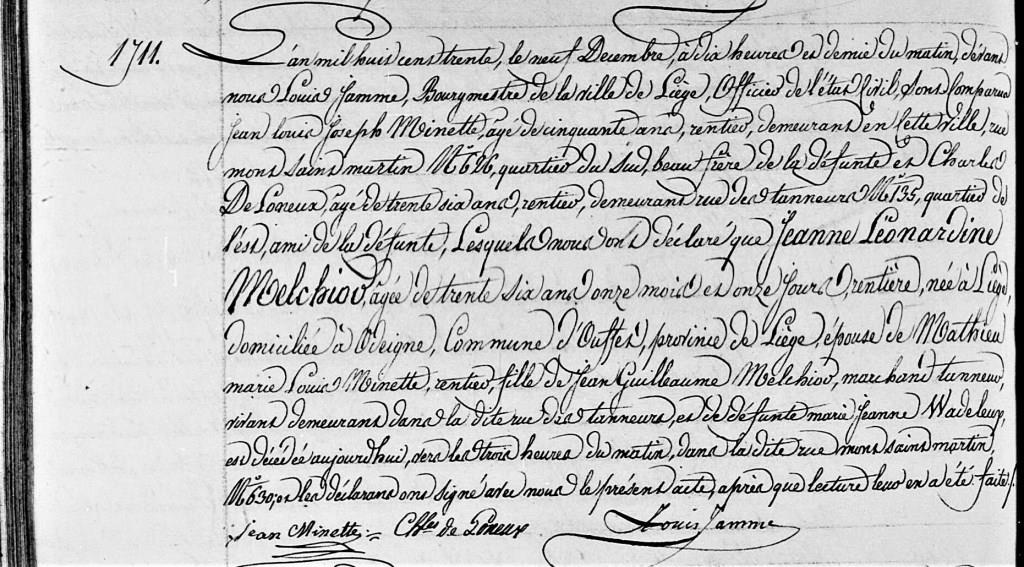 1711.
L'an mil huit cent trente, le neuf Decembre, à dix heures et demie du matin, devant
nous Louis Jamme, Bourgmestre de la ville de Liège, Officier de l'état Civil, sont Comparus
Jean Louis Joseph Minette, agé de cinquante ans, rentier, demeurant en cette ville, rue
mont saint martin N° 626, quartier du sud, beau frère de la défunte et Charles
De Loneux, agé de trente six ans, rentier, demeurant rue des tanneurs N° 135, quartier de
l'est, ami de la défunte, Lesquels nous ont déclaré que Jeanne Léonardine
Melchior, agée de trente six ans onze mois et onze jours, rentière, née à Liège,
domiciliée à Odeigne, Commune d'Ouffet, province de Liège, épouse de Mathieu
marie Louis Minette, rentier, fille de Jean Guillaume Melchior, marchand tanneur,
vivant demeurant dans la dite rue des tanneurs, et de défunte marie Jeanne Wadeleux,
est décédée aujourd'hui, vers les trois heures du matin, dans la dite rue mont saint martin,
N° 630, et les déclarans ont signé avec nous le présent acte, après que lecture leur en a été faite /.
Jean Minette Chles de Loneux Louis Jamme